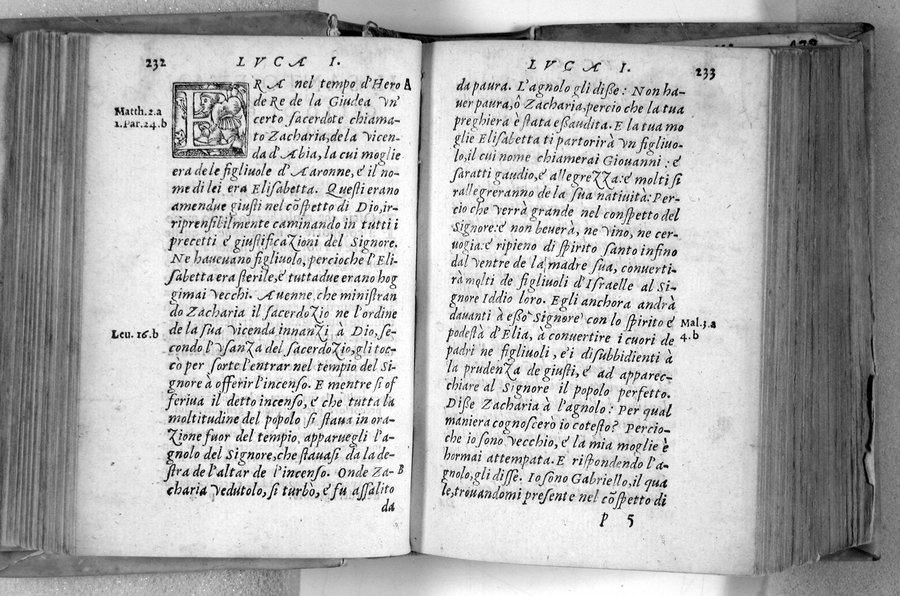 232
LVCA I.
ERA nel tempo d'Hero A
de Re de la Giudea vn'
Matth.2.a
certo sacerdote chiama-
1.Par.24.b
to Zacharia, de la vicen-
da d'Abia, la cui moglie
era de le figliuole d'Aaronne, é il no-
me di lei era Elisabetta. Questi erano
amendue giusti nel cõspetto di Dio, ir-
riprensibilmente caminando in tutti i
precetti é giustificazioni del Signore.
Ne haueuano figliuolo, percioche l'Eli-
sabetta era sterile, é tuttadue erano hog
gimai vecchi. Auenne, che ministran
do Zacharia il sacerdozio ne l'ordine
Leu. 16.b
de la sua vicenda innanzi à Dio, se-
condo l'vsanza del sacerdozio, gli toc-
cò per sorte l'entrar nel tempio del Si-
gnore à offerir l'incenso. E mentre si of
feriua il detto incenso, é che tutta la
moltitudine del popolo si staua in ora-
zione fuor del tempio, apparuegli l'a-
gnolo del Signore, che stauasi da la de-
stra de l'altar de l'incenso. Onde Za- B
charia vedutolo, si turbò, é fu assalito
da
LVCA I.
233
da paura. L'agnolo gli disse: Non ha-
uer paura, ò Zacharia, percio che la tua
preghiera è stata essaudita. E la tua mo
glie Elisabetta ti partorirà vn figliuo-
lo, il cui nome chiamerai Giouanni: é
saratti gaudio, é allegrezza: é molti si
rallegreranno de la sua natiuità: Per-
cio che verrà grande nel conspetto del
Signore: é non beuerà, ne vino, ne cer-
uogia: é ripieno di spirito santo infino
dal ventre de la madre sua, conuerti-
rà molti de figliuoli d'Israelle al Si-
gnore Iddio loro. Egli anchora andrà
dauanti à esso Signore con lo spirito é
Mal.3.a
podestà d'Elia, à conuertire i cuori de
4.b
padri ne figliuoli, é i disubbidienti à
la prudenza de giusti, é ad apparec-
chiare al Signore il popolo perfetto.
Disse Zacharia à l'agnolo: Per qual
maniera cognoscerò io cotesto? Percio-
che io sono vecchio, é la mia moglie è
hormai attempata. E rispondendo l'a-
gnolo, gli disse. Io sono Gabriello, il qua
le, trouandomi presente nel cõspetto di
P 5